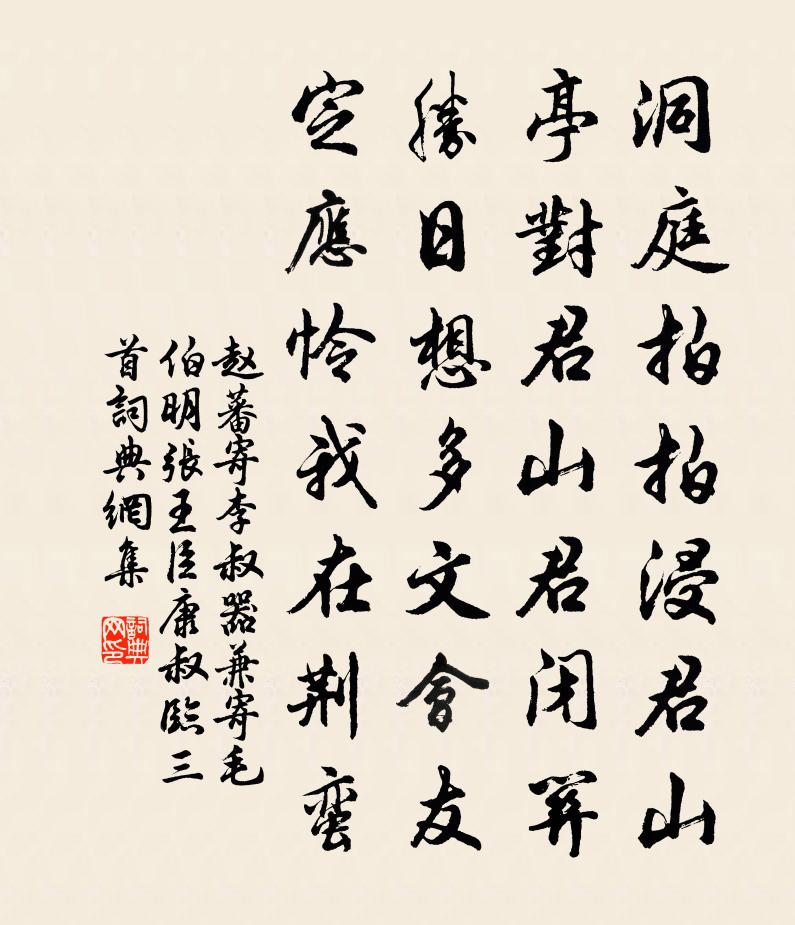 洞庭拍拍浸君山
亭對君山君閉關
勝日想多文會友
定應怜我在荆蛮
赵蕃寄李叔器兼寄毛
伯明張王臣康叔臨三
首詞典網集
詞典
网印